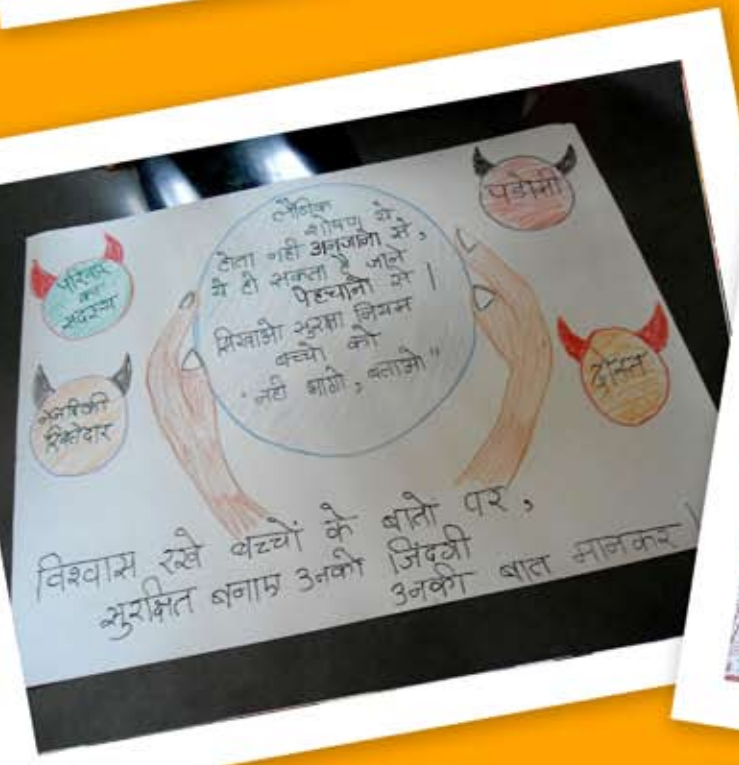 लैंगिक
शोषण ये
होता नही अनजानो से,
ये हो सकता है जाने
पेहचानो से।
सिखाओ सुरक्षा नियम
बच्चो को
"नही भागो, बताओ"
परिवार
का
सदस्य
नजदिकी
रिश्तेदार
पडोसी
दोस्त
विश्वास रखे बच्चों के बातो पर,
सुरक्षित बनाए उनकी जिंदगी
उनकी बात मानकर।